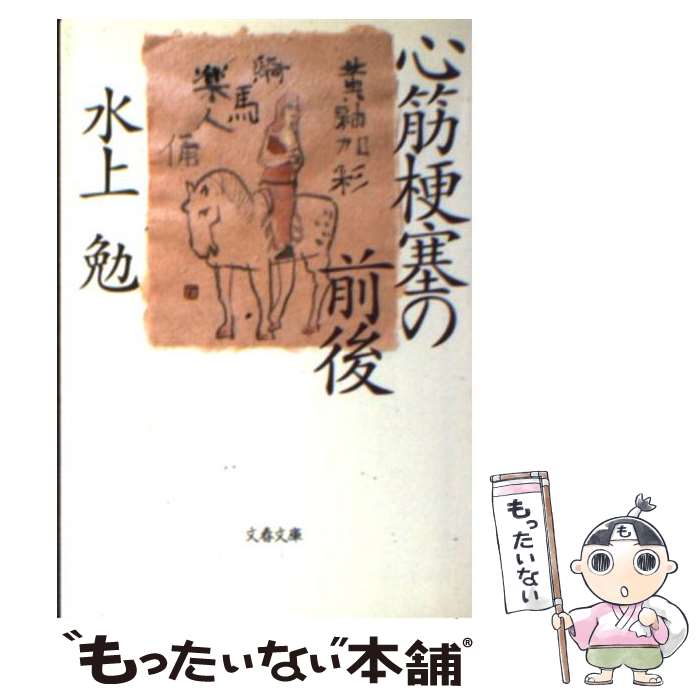 心筋梗塞の
前後
黄釉加彩
騎馬
楽人
俑
水上 勉
文春文庫
もったいない
も
"もったいない"本舗®